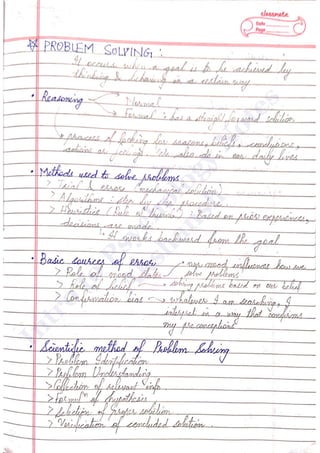 classmate
Date
Page
PROBLEM SOLVING :
It occurs when a goal is to be achieved by
thinking & behaving in a certain way
• Reasoning
Normal
Formal : has a straight forward solution
process of looking for reasons, beliefs, conclusions,
actions or feelings. We also do in our daily lives
• Methods used to solve problems
> Trial & error (mechanical solution)
> Algorithms : step by step procedure.
> Heuristics (Rule of thumb) : Based on prior experiences,
decisions are made
• It works backward from the goal
• Basic sources of error
> Role of mood state → our mood influences how we
solve problems
> Role of belief → solving problems based on our belief
> Confirmation bias → whatever I am searching, I
interpret in a way that confirms
my preconceptions
• Scientific method of Problem Solving
> Problem Identification
> Problem Understanding
> Collection of relevant info
> Formⁿ of hypothesis
> Selection of proper solution
> Verification of concluded solution.